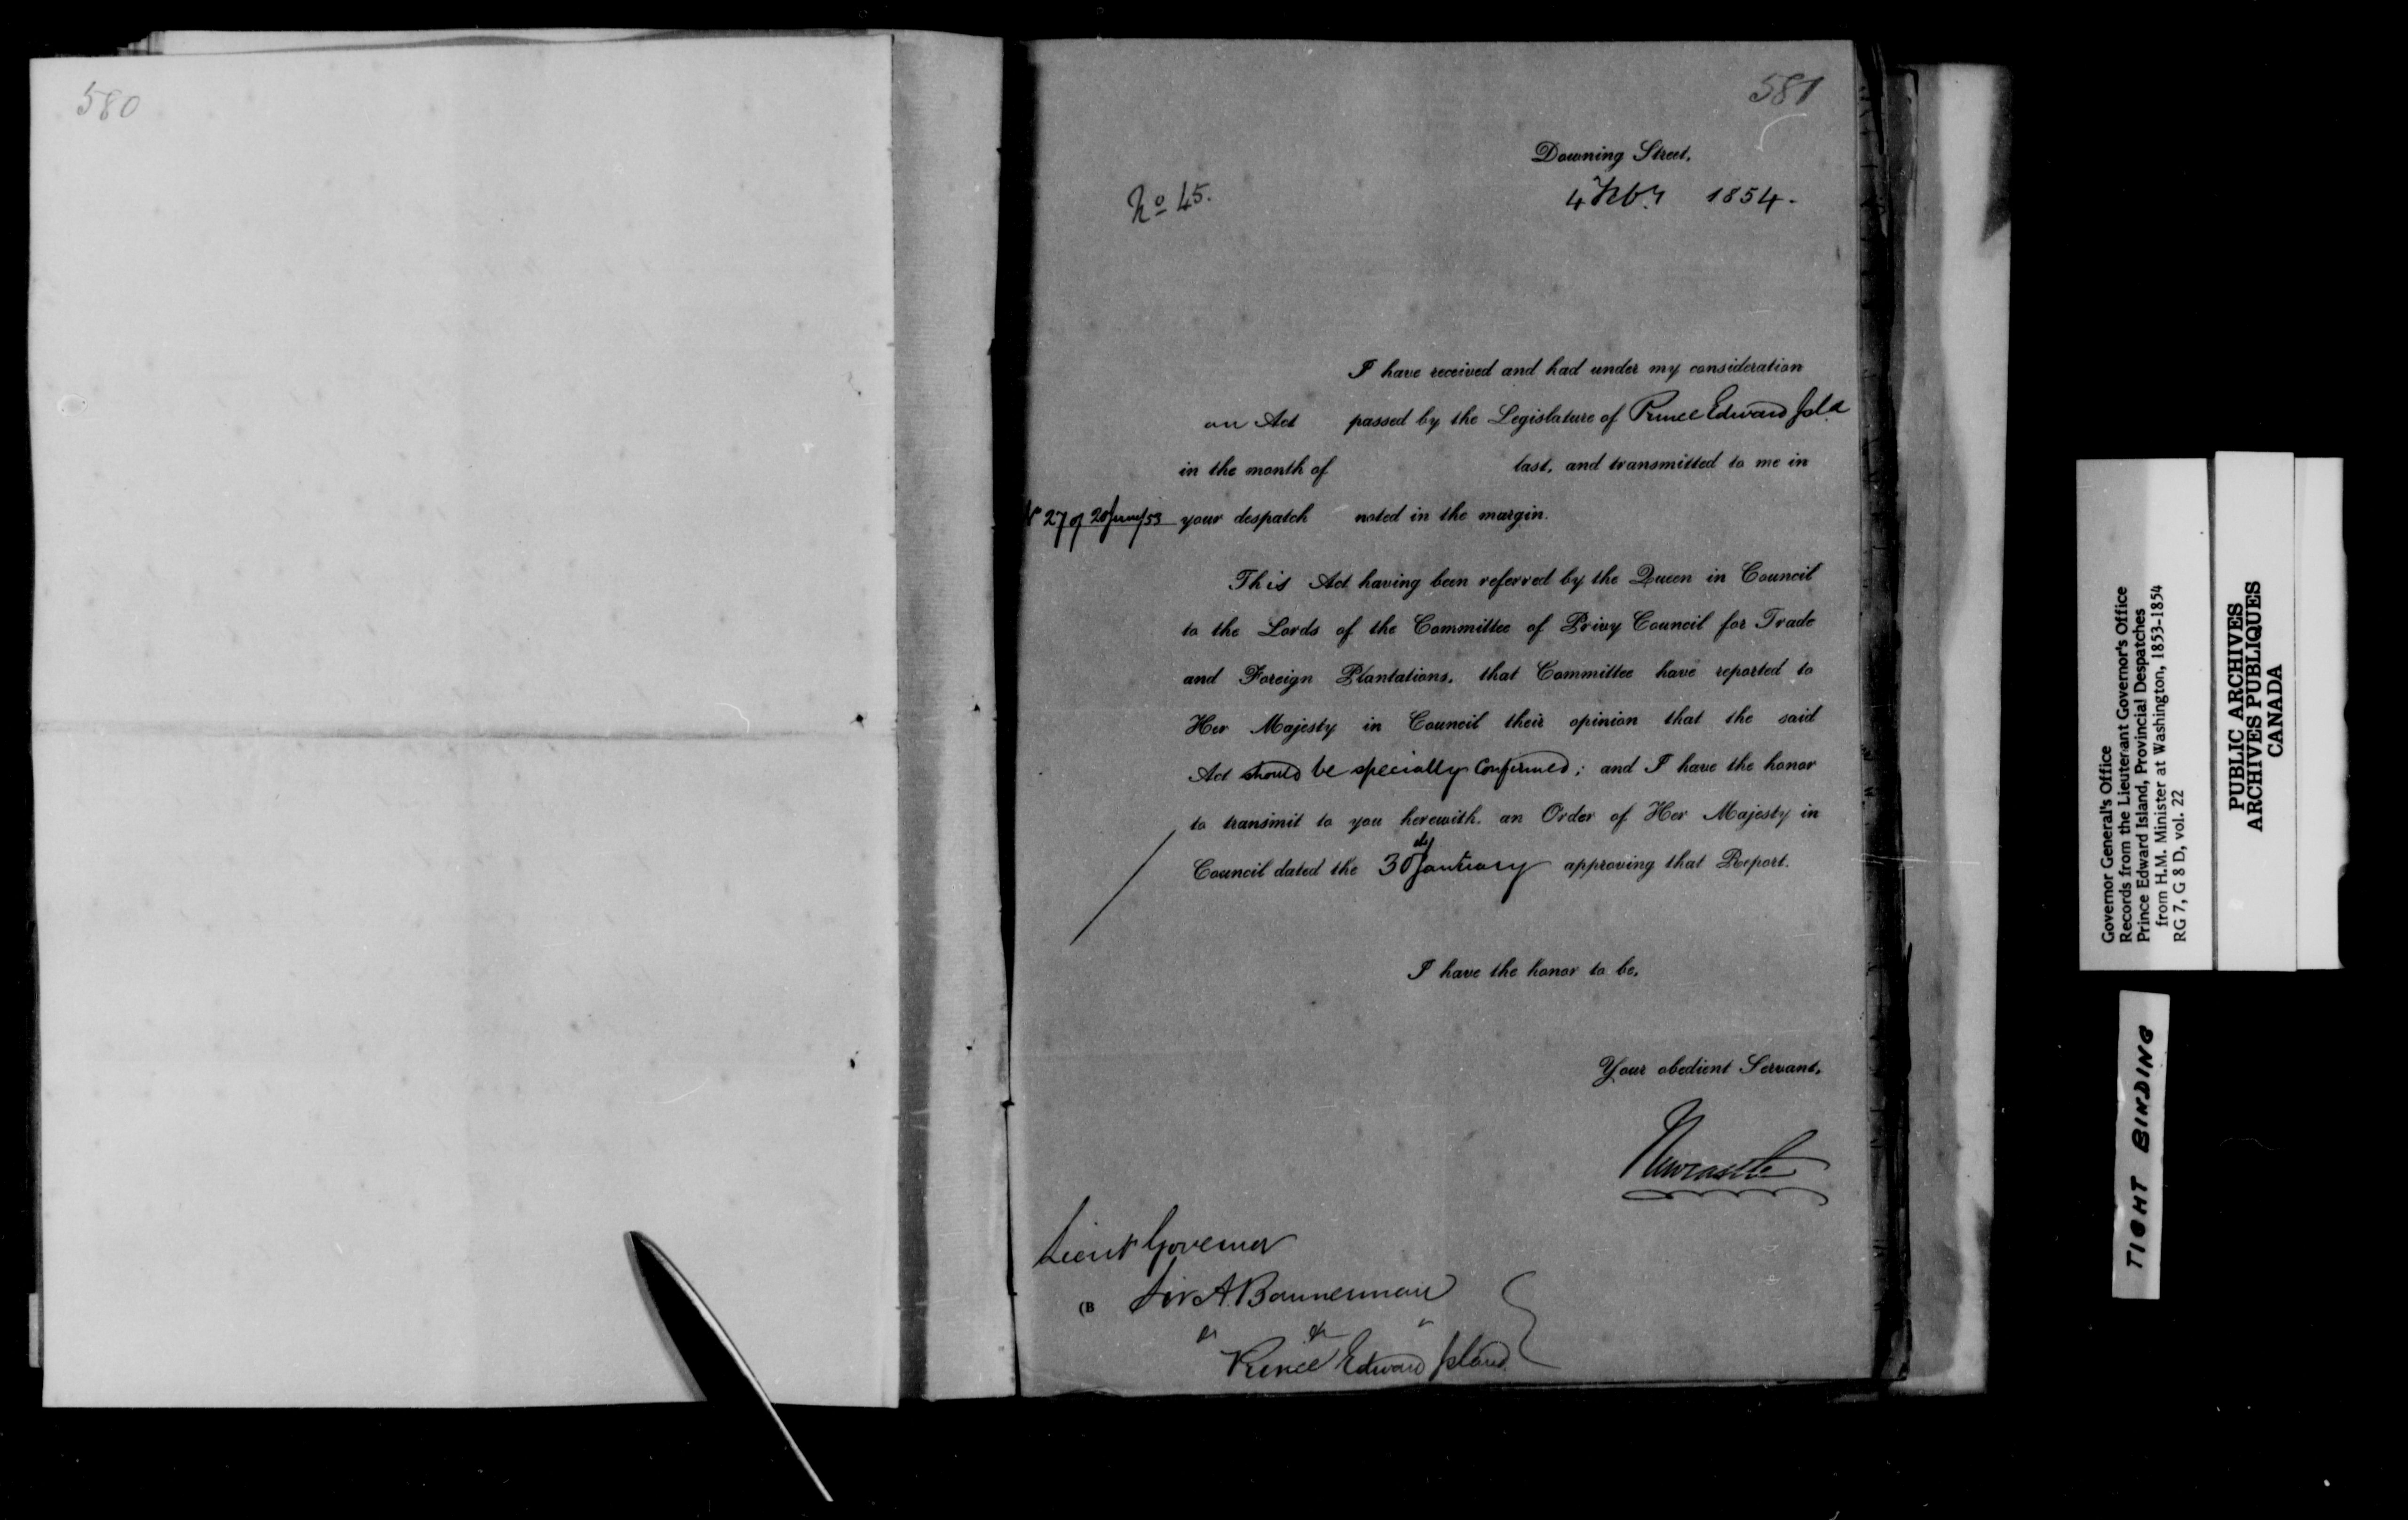 580
581
Downing Street,
No 45.
4 Feby 1854.
I have received and had under my consideration
an Act passed by the Legislature of Prince Edward Isld
in the month of last, and transmitted to me in
No 27 of 20 June/53 your despatch noted in the margin.
This Act having been referred by the Queen in Council
to the Lords of the Committee of Privy Council for Trade
and Foreign Plantations, that Committee have reported to
Her Majesty in Council their opinion that the said
Act should be specially confirmed; and I have the honor
to transmit to you herewith, an Order of Her Majesty in
Council dated the 30th January approving that Report.
I have the honor to be,
Your obedient Servant,
Newcastle
Lieut Governor
(B Sir A. Bannerman
&c &c &c
Prince Edward Island.
Governor General's Office
Records from the Lieutenant Governor's Office
Prince Edward Island, Provincial Despatches
from H.M. Minister at Washington, 1853-1854
RG 7, G 8 D, vol. 22
PUBLIC ARCHIVES
ARCHIVES PUBLIQUES
CANADA
TIGHT BINDING